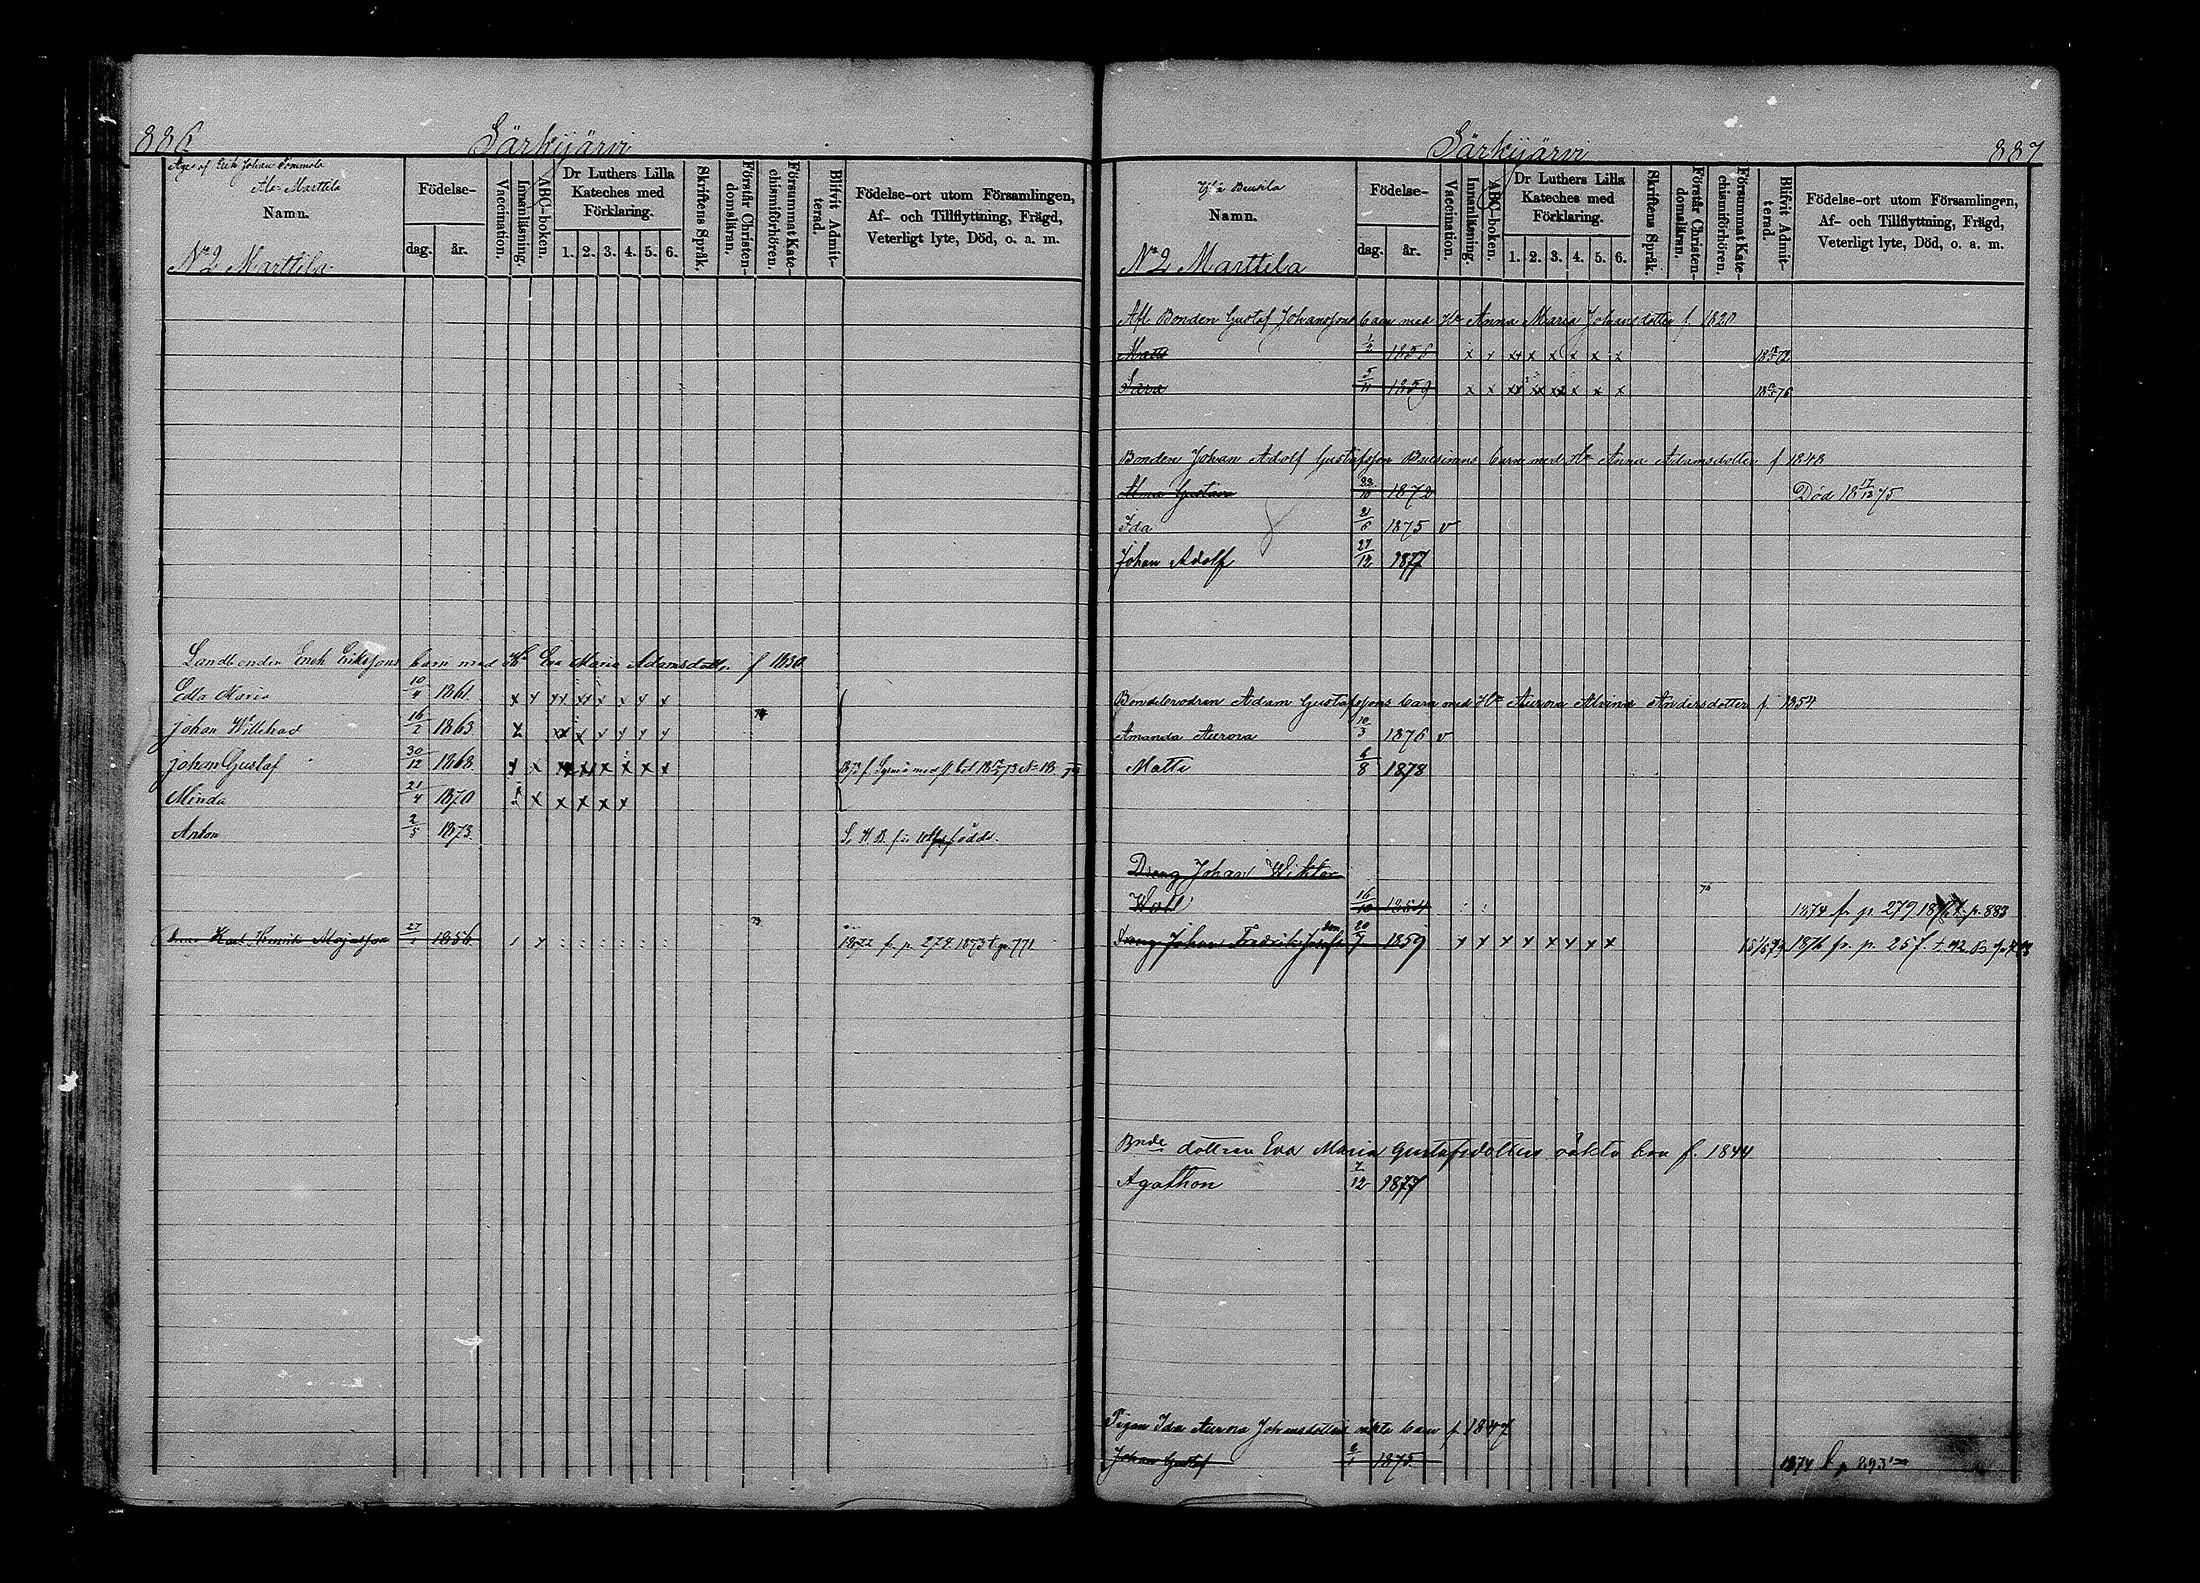 886
Särkijärvi
Äges af Erik Johan Tommola
Ala Marttila
Namn.
N:o 2 Marttila
Födelse-
dag.
år.
Vaccination.
Innanläsning.
ABC-boken.
Dr Luthers Lilla
Kateches med
Förklaring.
1. 2. 3. 4. 5. 6.
Skriftens Språk.
Förstår Christen-
domsläran.
Försummat Kate-
chismiförhören.
Blifvit Admit-
terad.
Födelse-ort utom Församlingen,
Af- och Tillflyttning, Frägd,
Veterligt lyte, Död, o. a. m.
Landbonden Erik Erikssons barn med H:u Eva Maria Adamsdotter f 1830
Edla Maria 10/4 1861 x x xx xx x x x x
Johan Willehad 16/2 1863 x xx x x x x x
Johan Gustaf 30/12 1868 x x x x x x x
Minda 21/4 1870 x x x x x
Anton 2/5 1873
Karl Henrik 27/1 1856 1872 fr. p. 278. 1873 t. p. 771
Särkijärvi
887
Namn.
N:o 2 Marttila
Födelse-
dag.
år.
Vaccination.
Innanläsning.
ABC-boken.
Dr Luthers Lilla
Kateches med
Förklaring.
1. 2. 3. 4. 5. 6.
Skriftens Språk.
Förstår Christen-
domsläran.
Försummat Kate-
chismiförhören.
Blifvit Admit-
terad.
Födelse-ort utom Församlingen,
Af- och Tillflyttning, Frägd,
Veterligt lyte, Död, o. a. m.
Afl. Bonden Gustaf Johanssons barn med H:u Anna Maria Johansdotter f. 1820
Matts 1/2 1856 x x xx x x x x x
Sara 5/11 1859 x x xx xx xx x x x
Bonden Johan Adolf Gustafsson barn med H:u Anna Adamsdotter f 1848
Alma Gustava 22/10 1872 Död 18 17/12 75
Ida 21/6 1875 v
Johan Adolf 27/12 1877
Bondebrodren Adam Gustafssons barn med H:u Aurora Alvina Andersdotter f. 1854
Amanda Aurora 10/3 1876 v
Matti 6/8 1878
Dreng Johan Wiktor
Wall 16/10 1854 1874 fr. p. 279 t. p. 883
Dreng Johan Fredrik 20/7 1859 x x x x x x x x 1876 fr. p. 257.
Bnde dottren Eva Maria Gustafsdotters oäkta barn f. 1844
Agathon 7/12 1877
Pigan Ida Aurora Johansdotters oäkta barn f 1847
Johan Gustaf 1875 1874 p 893